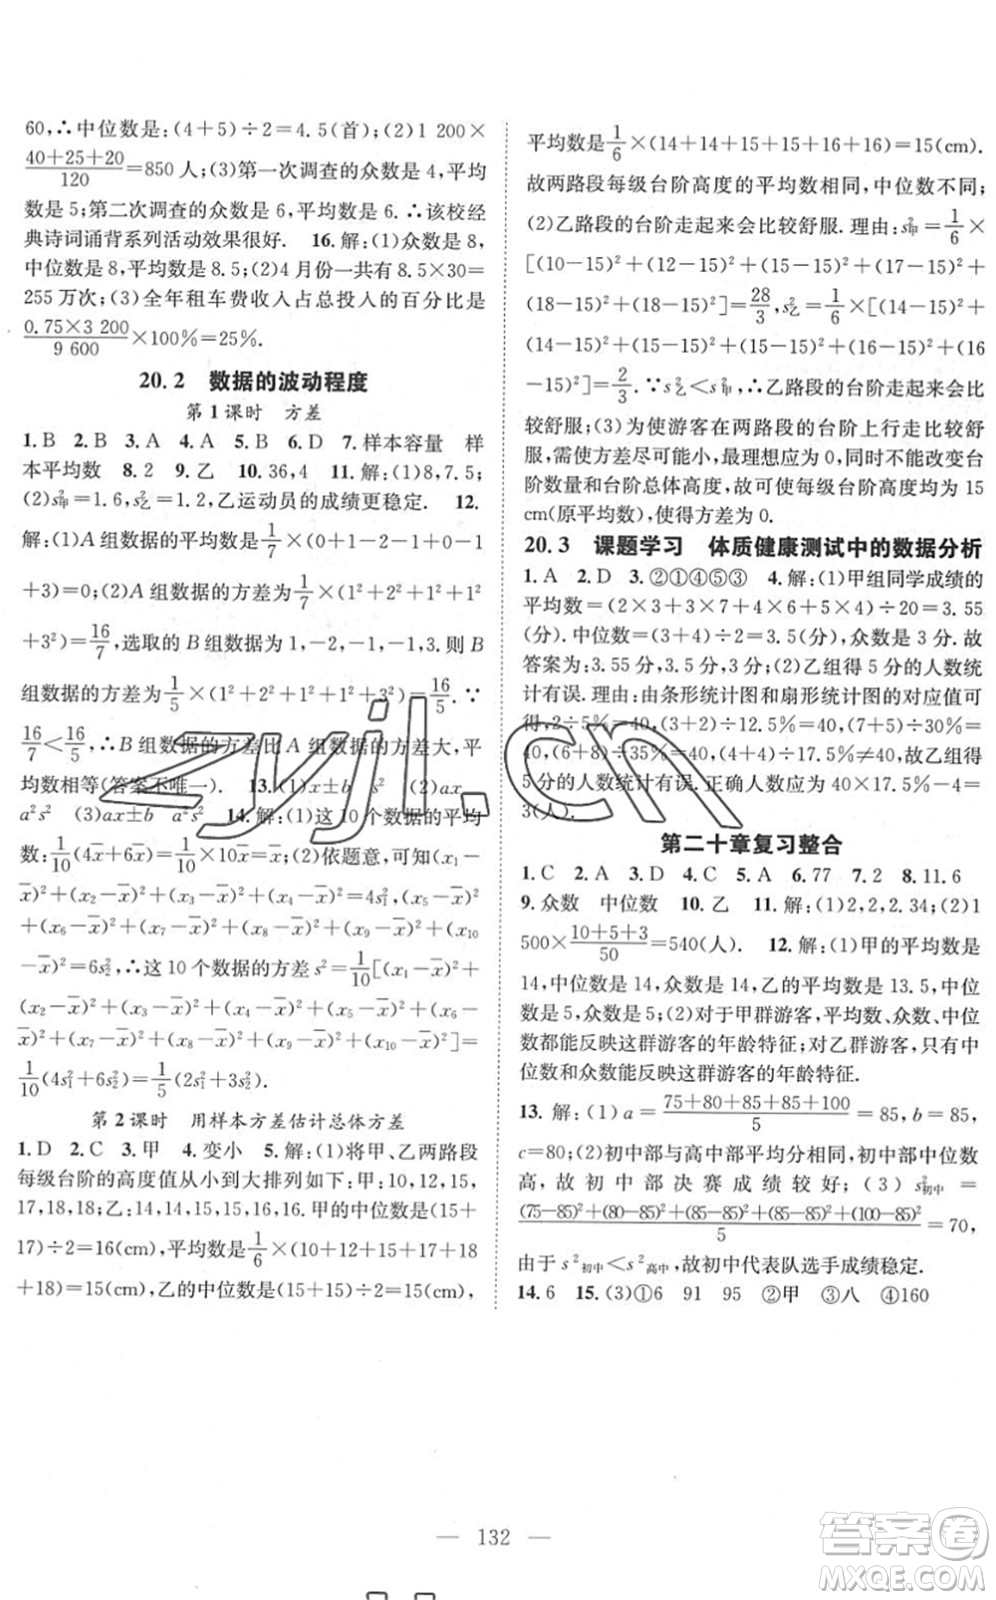 60,∴中位数是:(4+5)÷2=4.5(首);(2)1 200×
(40+25+20)/120=850 人;(3)第一次调查的众数是 4,平均
数是 5;第二次调查的众数是 6,平均数是 6.∴该校经
典诗词诵背系列活动效果很好. 16.解:(1)众数是 8,
中位数是 8,平均数是 8.5;(2)4 月份一共有 8.5×30=
255 万次;(3)全年租车费收入占总投入的百分比是
(0.75×3 200)/9 600×100%=25%.
20.2 数据的波动程度
第 1 课时 方差
1.B 2.B 3.A 4.A 5.B 6.D 7.样本容量 样
本平均数 8.2 9.乙 10.36,4 11.解:(1)8,7.5;
(2)s²甲=1.6,s²乙=1.2,乙运动员的成绩更稳定. 12.
解:(1)A 组数据的平均数是1/7×(0+1-2-1+0-1
+3)=0;(2)A 组数据的方差为1/7×(1²+2²+1²+1²
+3²)=16/7,选取的 B 组数据为 1,-2,-1,-1,3.则 B
组数据的方差为1/5×(1²+2²+1²+1²+3²)=16/5.∵
16/7<16/5,∴B 组数据的方差比 A 组数据的方差大,平
均数相等(答案不唯一). 13.(1)x±b s² (2)ax
a²s² (3)ax±b a²s² 14.解:(1)这 10 个数据的平均
数:1/10(4x̄+6x̄)=1/10×10x̄=x̄;(2)依题意,可得(x₁-
x̄)²+(x₂-x̄)²+(x₃-x̄)²+(x₄-x̄)²=4s₁²,(x₅-x̄)²
+(x₆-x̄)²+(x₇-x̄)²+(x₈-x̄)²+(x₉-x̄)²+(x₁₀
-x̄)²=6s₂²,∴这 10 个数据的方差 s²=1/10[(x₁-x̄)²+
(x₂-x̄)²+(x₃-x̄)²+(x₄-x̄)²+(x₅-x̄)²+(x₆-
x̄)²+(x₇-x̄)²+(x₈-x̄)²+(x₉-x̄)²+(x₁₀-x̄)²]=
1/10(4s₁²+6s₂²)=1/5(2s₁²+3s₂²).
第 2 课时 用样本方差估计总体方差
1.D 2.C 3.甲 4.变小 5.解:(1)将甲、乙两路段
每级台阶的高度值从小到大排列如下:甲:10,12,15,
17,18,18;乙:14,14,15,15,16,16.甲的中位数是(15+
17)÷2=16(cm),平均数是1/6×(10+12+15+17+18
+18)=15(cm),乙的中位数是(15+15)÷2=15(cm),
平均数是1/6×(14+14+15+15+16+16)=15(cm).
故两路段每级台阶高度的平均数相同,中位数不同;
(2)乙路段的台阶走起来会比较舒服.理由:s²甲=1/6
×[(10-15)²+(12-15)²+(15-15)²+(17-15)²+
(18-15)²+(18-15)²]=28/3,s²乙=1/6×[(14-15)²+
(14-15)²+(15-15)²+(15-15)²+(16-15)²+(16
-15)²]=2/3.∵s²乙<s²甲,∴乙路段的台阶走起来会比
较舒服;(3)为使游客在两路段的台阶上行走比较舒
服,需使方差尽可能小,最理想应为 0,同时不能改变台
阶数量和台阶总体高度,故可使每级台阶高度均为 15
cm(原平均数),使得方差为 0.
20.3 课题学习 体质健康测试中的数据分析
1.A 2.D 3.②①④⑤③ 4.解:(1)甲组同学成绩的
平均数=(2×3+3×7+4×6+5×4)÷20=3.55
(分).中位数=(3+4)÷2=3.5(分),众数是 3 分.故
答案为:3.55 分,3.5 分,3 分;(2)乙组得 5 分的人数统
计有误.理由:由条形统计图和扇形统计图的对应值可
得,2÷5%=40,(3+2)÷12.5%=40,(7+5)÷30%=
40,(6+8)÷35%=40,(4+4)÷17.5%≠40,故乙组得
5 分的人数统计有误.正确人数应为 40×17.5%-4=
3(人).
第二十章复习整合
1.C 2.A 3.D 4.C 5.A 6.77 7.2 8.11.6
9.众数 中位数 10.乙 11.解:(1)2,2,2.34;(2)1
500×(10+5+3)/50=540(人). 12.解:(1)甲的平均数是
14,中位数是 14,众数是 14,乙的平均数是 13.5,中位
数是 5,众数是 5;(2)对于甲群游客,平均数、众数、中位
数都能反映这群游客的年龄特征;对乙群游客,只有中
位数和众数能反映这群游客的年龄特征.
13.解:(1)a=(75+80+85+85+100)/5=85,b=85,
c=80;(2)初中部与高中部平均分相同,初中部中位数
高,故初中部决赛成绩较好;(3)s²初中=
((75-85)²+(80-85)²+(85-85)²+(85-85)²+(100-85)²)/5=70,
由于 s²初中<s²高中,故初中代表队选手成绩稳定.
14.6 15.(3)①6 91 95 ②甲 ③八 ④160
132
zyjl.cn
答案圈
MXQE.COM